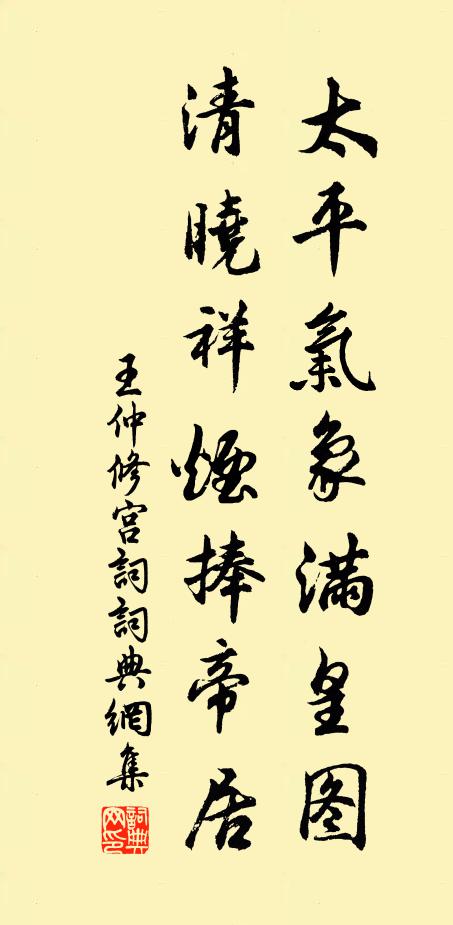 太平氣象滿皇图
清曉祥煙捧帝居
王仲修宫詞詞典網集
詞典网印